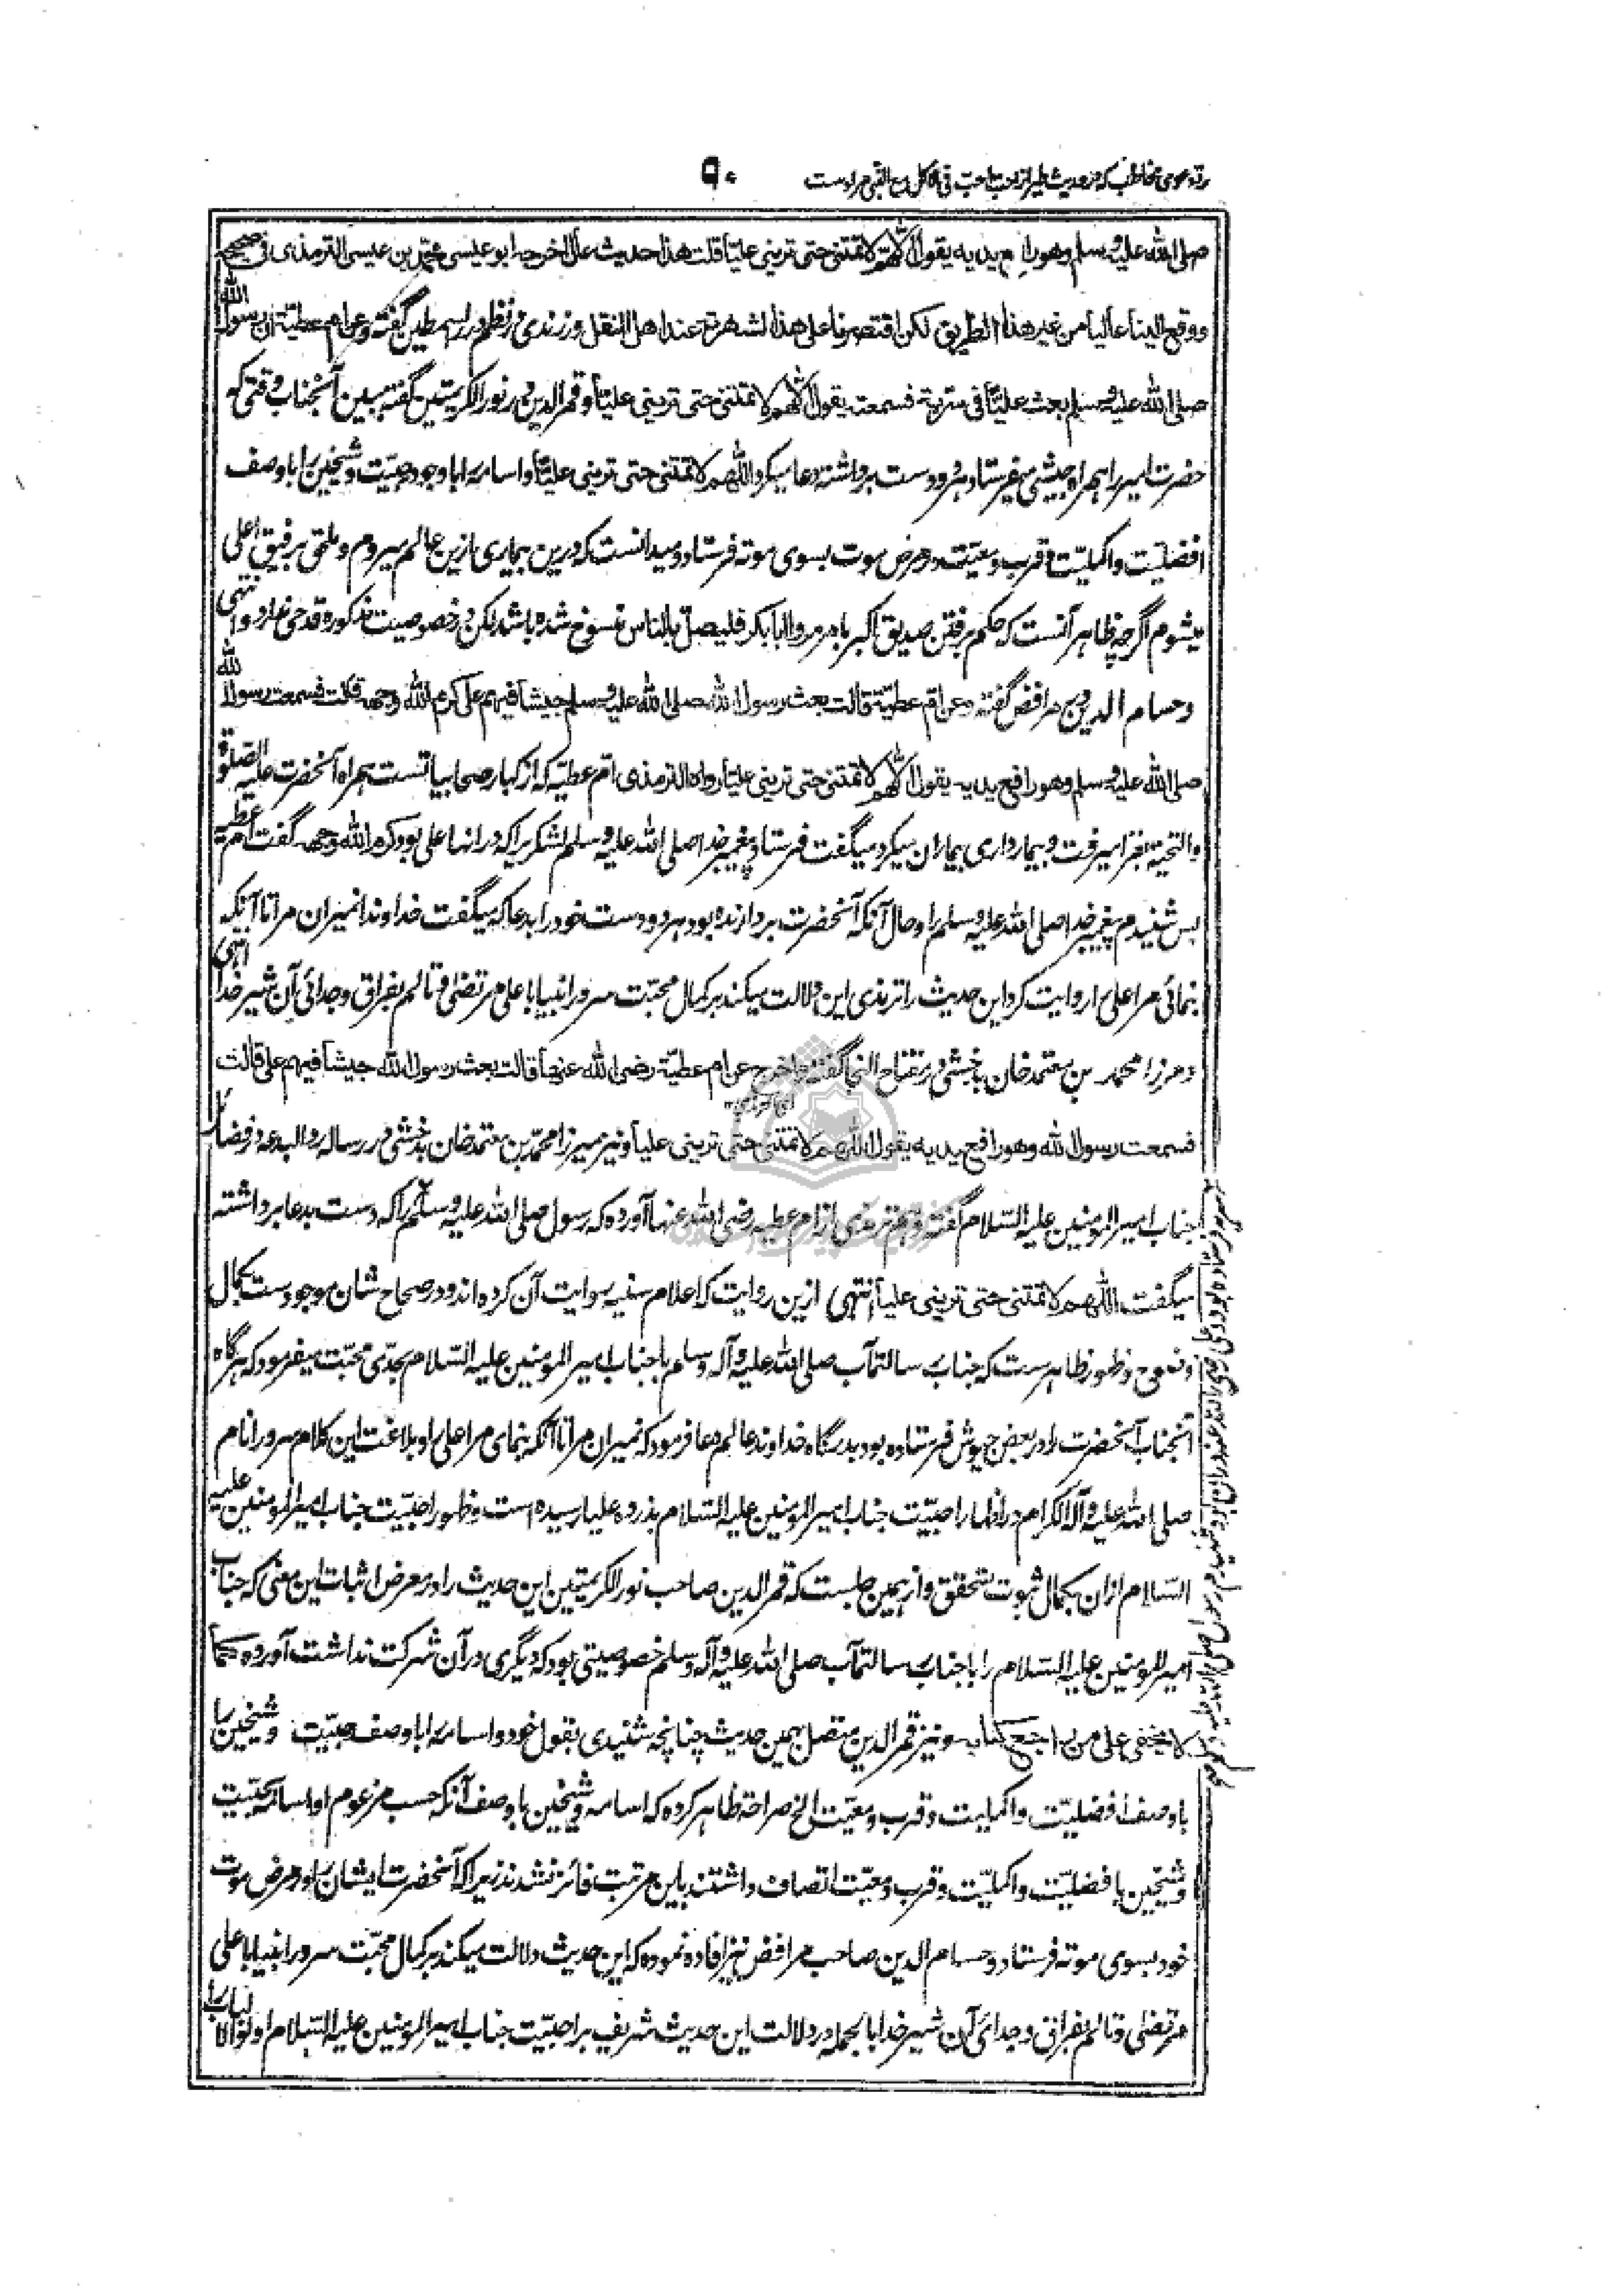 رد دعوی مخاطب که در حدیث طیر از احب احب فی الاکل مع النبی مراد ست
۹۰
صلی الله علیه وسلم وهو رافع یدیه یقول اللهم لا تمتنی حتی ترینی علیاً قلت هذا حدیث عال اخرجه ابو عیسی محمد بن عیسی الترمذی فی صحیحه
ووقع الینا عالیا من غیر هذا الطریق لکن اقتصرنا علی هذا لشهرته عند اهل النقل وزرندی در نظم درر السمطین گفته وعن ام عطیّة ان رسول الله
صلی الله علیه وسلم بعث علیّاً فی سریة فسمعته یقول اللهم لا تمتنی حتی ترینی علیّاً و قمر الدین در نور الکریمتین گفته ببین آنجناب وقتی که
حضرت امیر را همراه جیشی میفرستاد هر دو دست برداشته دعا میکرد اللهم لا تمتنی حتی ترینی علیّاً و اسامه را با وجود حبیّت و شیخین را با وصف
افضلیّت و اکملیّت و قرب و معیّت در مرض موت بسوی موته فرستاد و میدانست که درین بیماری ازین عالم میروم و ملحق برفیق اعلی
میشوم اگرچه ظاهر آنست که حکم برفتن صدیق اکبر بامر مروا ابا بکر فلیصل بالناس منسوخ شده باشد لیکن در خصوصیت مذکوره قدحی ندارد انتهی
و حسام الدین در مرافض گفته وعن ام عطیّة قالت بعث رسول الله صلی الله علیه وسلم جیشاً فیهم علی کرم الله وجهه قالت فسمعت رسول الله
صلی الله علیه وسلم وهو رافع یدیه یقول اللهم لا تمتنی حتی ترینی علیّاً رواه الترمذی ام عطیّه که از کبار صحابیاتست همراه آنحضرت علیه الصلوة
والتحیة بغزا میرفت و بیمارداری بیماران میکرد میگفت فرستاد پیغمبر خدا صلی الله علیه وسلم لشکری را که در انها علی بود کرم الله وجهه گفت ام عطیه
پس شنیدم پیغمبر خدا صلی الله علیه وسلم را و حال آنکه آنحضرت بردارنده بود هر دو دست خود را بدعا که میگفت خداوندا نمیران مرا تا آنکه
بنمائی مرا علی را روایت کرد این حدیث را ترمذی این دلالت میکند بر کمال محبّت سرور انبیا با علی مرتضی و تالم بفراق و جدائی آن شیر خدا انتهی
و مرزا محمد بن معتمد خان بدخشی در مفتاح النجا گفته واخرج عن ام عطیّة رضی الله عنها قالت بعث رسول الله جیشاً فیهم علی قالت
فسمعت رسول الله وهو رافع یدیه یقول اللهم لا تمتنی حتی ترینی علیاً و نیز میرزا محمد بن معتمد خان بدخشی در رساله رد البدعه در فضائل
جناب امیر المومنین علیه السلام گفته وهم ترمذی از ام عطیه رضی الله عنها آورده که رسول صلی الله علیه وسلم را که دست بدعا برداشته
میگفت اللهم لا تمتنی حتی ترینی علیاً انتهی ازین روایت که اعلام سنیه روایت آن کرده اند و در صحاح شان موجودست بکمال
وضوح و ظهور ظاهرست که جناب رسالتمآب صلی الله علیه وآله وسلم با جناب امیر المومنین علیه السلام بحدّی محبّت میفرمود که هرگاه
آنجناب آنحضرت را در بعض جیوش فرستاده بود بدرگاه خداوند عالم دعا فرمود که نمیران مرا تا آنکه بنمای مرا علی را و بلاغت این کلام سرور انام
صلی الله علیه وآله الکرام در اظهار احبیّت جناب امیر المومنین علیه السلام بذروه علیا رسیده است و ظهور احبّیت جناب امیر المومنین علیه
السلام ازان بکمال ثبوت متحقق و از همین جاست که قمر الدین صاحب نور الکریمتین این حدیث را در معرض اثبات این معنی که جناب
امیر المومنین علیه السلام را با جناب رسالتمآب صلی الله علیه وآله وسلم خصوصیتی بود که دیگری در آن شرکت نداشت آورده کما
لا یخفی علی من راجع کتابه و نیز قمر الدین متصل بهمین حدیث چنانچه شنیدی بقول خود و اسامه را با وصف حبیّت و شیخین را
با وصف افضلیّت و اکملیت و قرب و معیّت الخ صراحة ظاهر کرده که اسامه و شیخین با وصف آنکه حسب مزعوم او اسامه بحبّیت
و شیخین بافضلیّت و اکملیّت و قرب و معیّت اتصاف داشتند باین مرتبت فائز نشدند زیرا که آنحضرت ایشان را در مرض موت
خود بسوی موته فرستاد و حسام الدین صاحب مرافض نیز افاده نموده که این حدیث دلالت میکند بر کمال محبّت سرور انبیا با علی
مرتضی و تالم بفراق و جدائی آن شیر خدا بالجمله در دلالت این حدیث شریف بر احبیّت جناب امیر المومنین علیه السلام اولو الالباب را